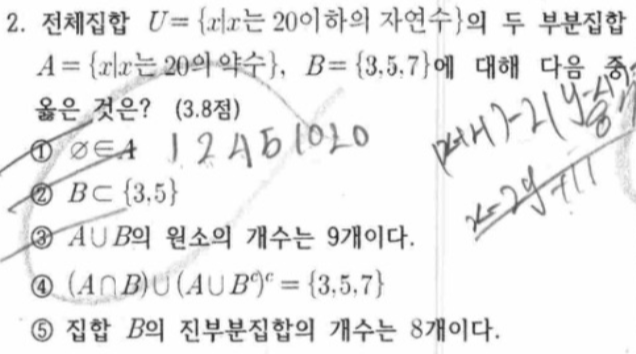 2. 전체집합 U={x|x는 20이하의 자연수}의 두 부분집합
A={x|x는 20의 약수}, B={3,5,7}에 대해 다음 중
옳은 것은? (3.8점)
① ∅∈A 1 2 4 5 10 20
② B⊂{3,5}
③ A∪B의 원소의 개수는 9개이다.
④ (A∩B)∪(A∪Bᶜ)ᶜ={3,5,7}
⑤ 집합 B의 진부분집합의 개수는 8개이다.
x-2y+11